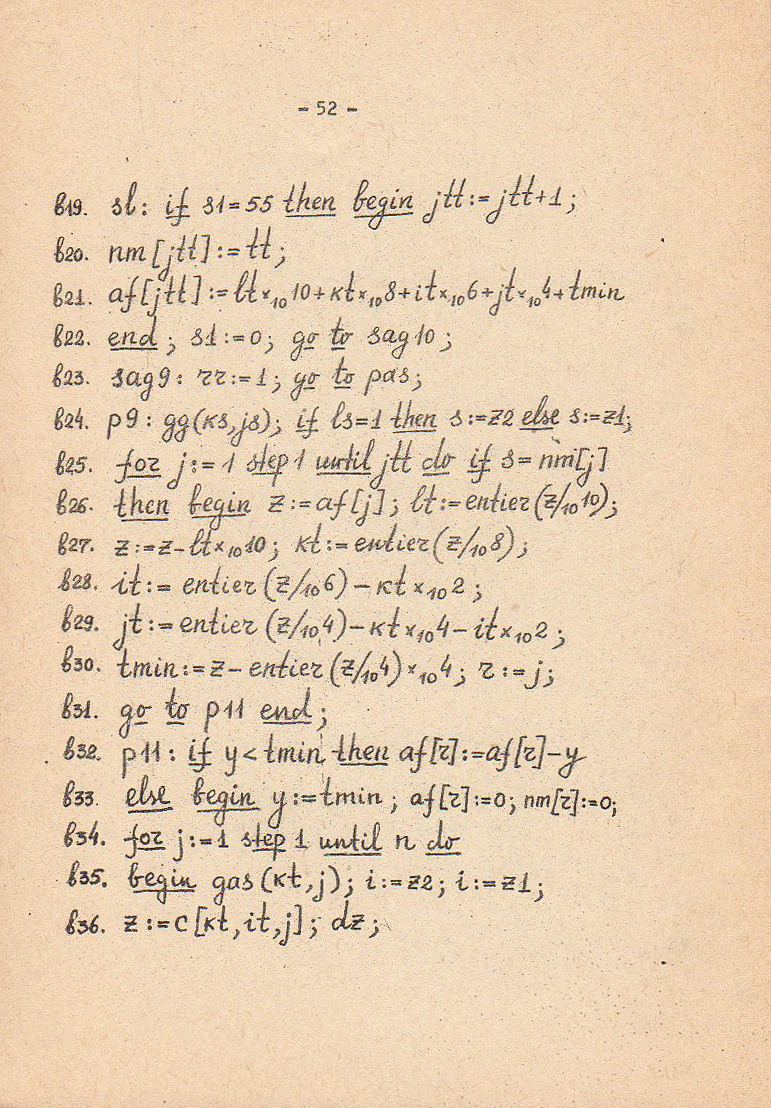 - 52 -
в19. sl: if s1=55 then begin jtt:=jtt+1;
в20. nm[jtt]:=tt;
в21. af[jtt]:=lt×₁₀10+kt×₁₀8+it×₁₀6+jt×₁₀4+tmin
в22. end; s1:=0; go to sag10;
в23. sag9: rr:=1; go to pas;
в24. p9: gg(ks,js); if ls=1 then s:=z2 else s:=z1;
в25. for j:=1 step 1 until jtt do if s=nm[j]
в26. then begin z:=af[j]; lt:=entier(z/₁₀10);
в27. z:=z-lt×₁₀10; kt:=entier(z/₁₀8);
в28. it:= entier(z/₁₀6)-kt×₁₀2;
в29. jt:=entier(z/₁₀4)-kt×₁₀4-it×₁₀2;
в30. tmin:=z-entier(z/₁₀4)×₁₀4; r:=j;
в31. go to p11 end;
в32. p11: if y<tmin then af[r]:=af[r]-y
в33. else begin y:=tmin; af[r]:=0; nm[r]:=0;
в34. for j:=1 step 1 until n do
в35. begin gas(kt,j); i:=z2; i:=z1;
в36. z:=c[kt,it,j]; dz;